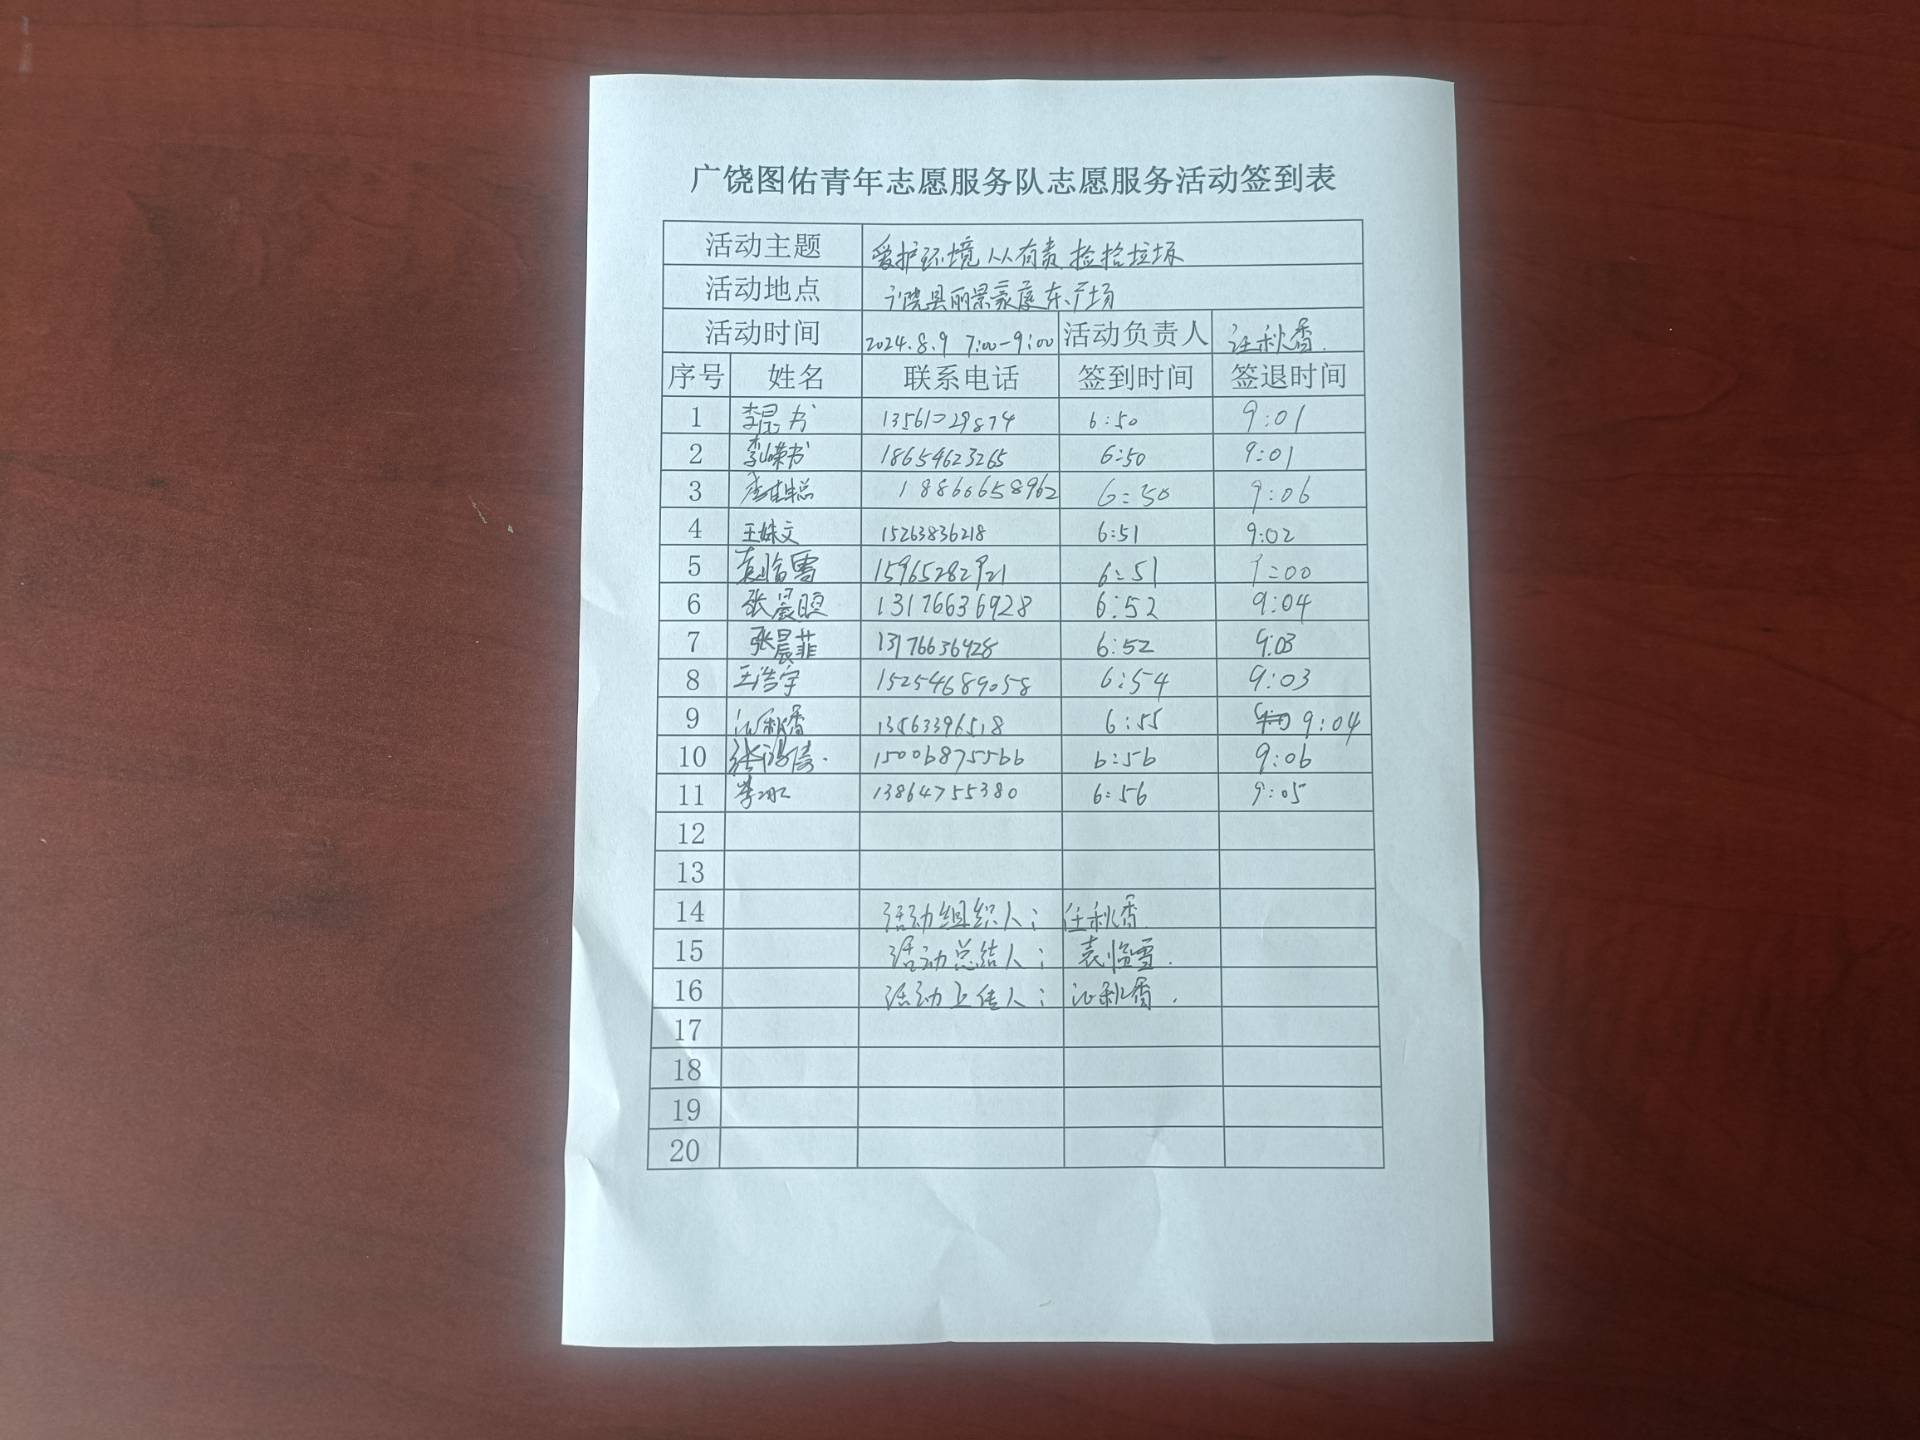 广饶图佑青年志愿服务队志愿服务活动签到表
活动主题 爱护环境 人人有责 捡拾垃圾
活动地点 广饶县丽景豪庭东广场
活动时间 2024.8.9 7:00-9:00 活动负责人 汪秋香.
序号 姓名 联系电话 签到时间 签退时间
1 李昂书 6:50 9:01
2 李嵘书 18654623265 6:50 9:01
3 18860658962 6:50 9:06
4 王姝文 15263836218 6:51 9:02
5 袁临雪 15965282921 6:51 9:00
6 张晨 13176636928 6:52 9:04
7 张晨菲 13176636928 6:52 9:03
8 王浩宇 15254689058 6:54 9:03
9 汪秋香 13563396518 6:55 9:04
10 张 15006875566 6:56 9:06
11 李冰 13864755380 6:56 9:05
12
13
14 活动组织人: 汪秋香.
15 活动总结人: 袁临雪.
16 活动上传人: 汪秋香.
17
18
19
20